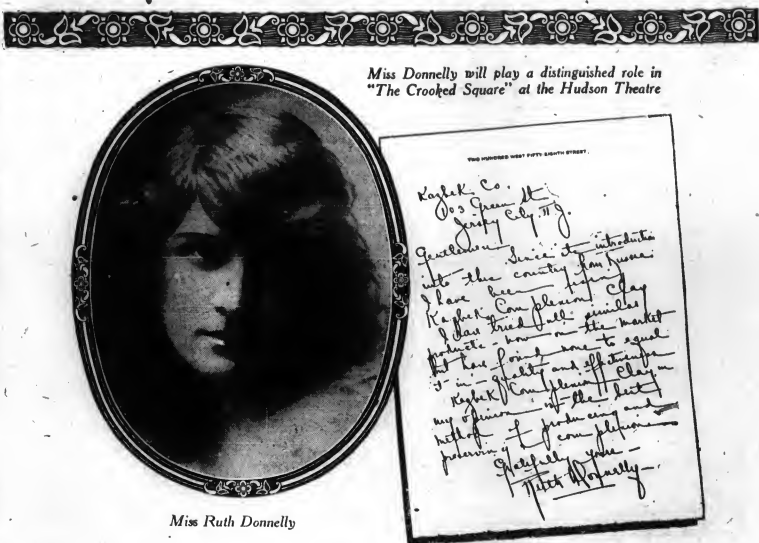 Miss Donnelly will play a distinguished role in
"The Crooked Square" at the Hudson Theatre
TWO HUNDRED WEST FIFTY-EIGHTH STREET
Kazbek Co.
103 Green St.
Jersey City N.J.
Gentlemen— Since its introduction
into this country from Russia
I have been using
Kazbek Complexion Clay
I have tried all similar
products now on the market
but have found none to equal
it in quality and effectiveness
Kazbek Complexion Clay in
my opinion is the best
method of producing and
preserving a complexion
Gratefully yours—
Ruth Donnelly—
Miss Ruth Donnelly